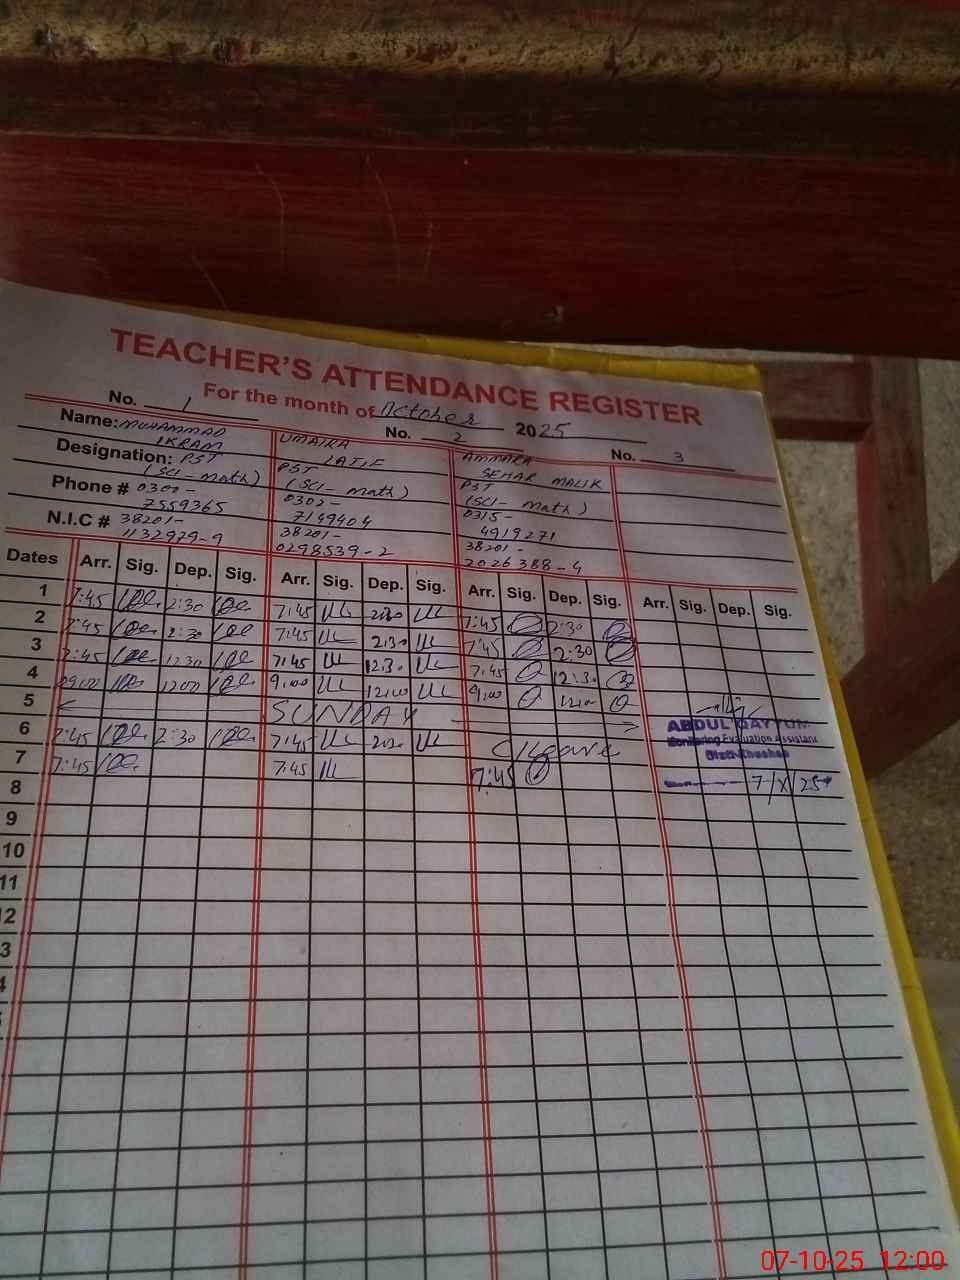 TEACHER'S ATTENDANCE REGISTER
For the month of October 2025
No. 1 No. 2 No. 3
Name: MUHAMMAD IKRAM UMAIRA LATIF AMMARA SEHAR MALIK
Designation: PST (SCI-Math) PST (SCI-Math) PST (SCI-Math)
Phone # 0301-7559365 0302-7149404 0315-4919271
N.I.C # 38201-1132929-9 38201-0298539-2 38201-2026388-4
Dates Arr. Sig. Dep. Sig. Arr. Sig. Dep. Sig. Arr. Sig. Dep. Sig. Arr. Sig. Dep. Sig.
1 7:45 2:30 7:45 2:30 7:45 2:30
2 7:45 2:30 7:45 2:30 7:45 2:30
3 7:45 12:30 7:45 12:30 7:45 12:30
4 09:00 12:00 9:00 12:00 9:00 12:00
5 SUNDAY
6 7:45 2:30 7:45 2:30 C/Leave
ABDUL QAYYUM
Monitoring Evaluation Assistant
Distt. Khushab
7 7:45 7:45 7:45
7/X/25
8
9
10
11
12
3
4
07-10-25 12:00